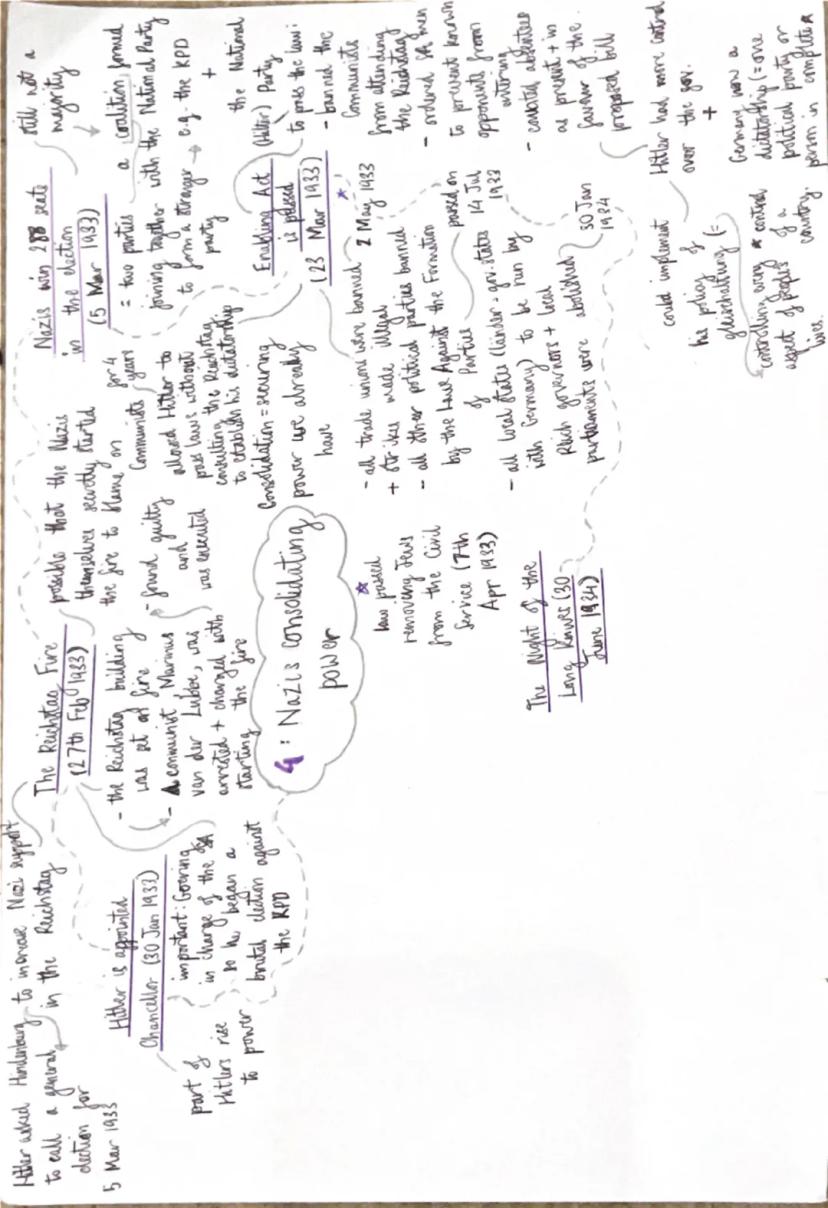 Hitler asked Hindenburg to increase Nazi support
to call a general in the Reichstag
election for
5 Mar 1933
Hitler is appointed
Chancellor (30 Jan 1933)
part of
Hitlers rise
to power
important: Goering
in charge of the SA
so he began a
brutal election against
the KPD
The Reichstag Fire
(27th Feb 1933)
- the Reichstag building
was set on fire
- A communist Marinus
van der Lubbe, was
arrested + charged with
starting the fire
- found guilty
and
was executed
possible that the Nazis
themselves secretly started
the fire to blame on
Communists
4: Nazis consolidating
power
Consolidation = securing
power we already
have
Nazis win 288 seats
in the election
(5 Mar 1933)
still not a
majority
= two parties a coalition formed
joining together with the National Party
to form a stronger → e.g. the KPD
party +
the National
(Hitler) Party
Enabling Act
is passed
(23 Mar 1933)
for 4
years
allowed Hitler to
pass laws without
consulting the Reichstag
to establish his dictatorship
to pass the law:
- banned the
Communists
from attending
the Reichstag
- ordered SA men
to prevent known
opponents from
entering
- counted absentees
as present + in
favour of the
proposed bill
- all trade unions were banned 2 May 1933
+ strikes made illegal
- all other political parties banned
by the Law Against the Formation
of Parties
passed on
14 Jul
1933
- all local states (Länder = gov. states
with Germany) to be run by
Reich governors + local
parliaments were abolished
30 Jan
1934
law passed
removing Jews
from the Civil
Service (7th
Apr 1933)
The Night of the
Long Knives (30
June 1934)
Hitler had more control
over the gov.
+
Germany now a
dictatorship (= one
political party or
person in complete
control
of a
country.
could implement
his policy of
gleischaltung (=
controlling every
aspect of peoples
lives.